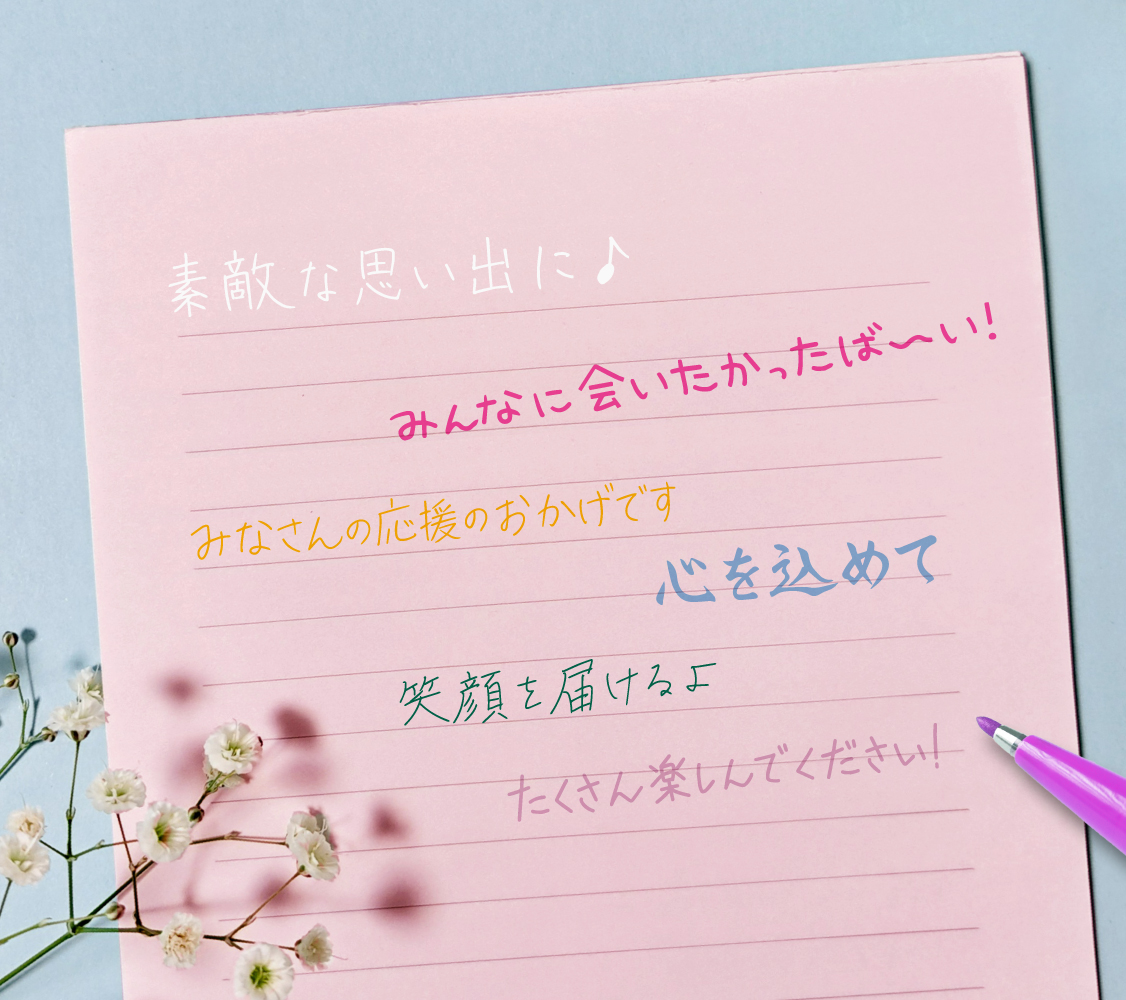 素敵な思い出に♪
みんなに会いたかったば〜い！
みなさんの応援のおかげです
心を込めて
笑顔を届けるよ
たくさん楽しんでください！